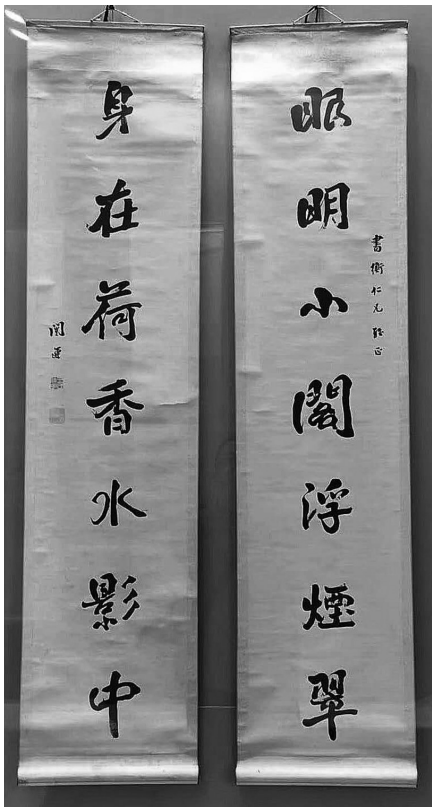 眼明小閣浮煙翠
書衡仁兄正
身在荷香水影中